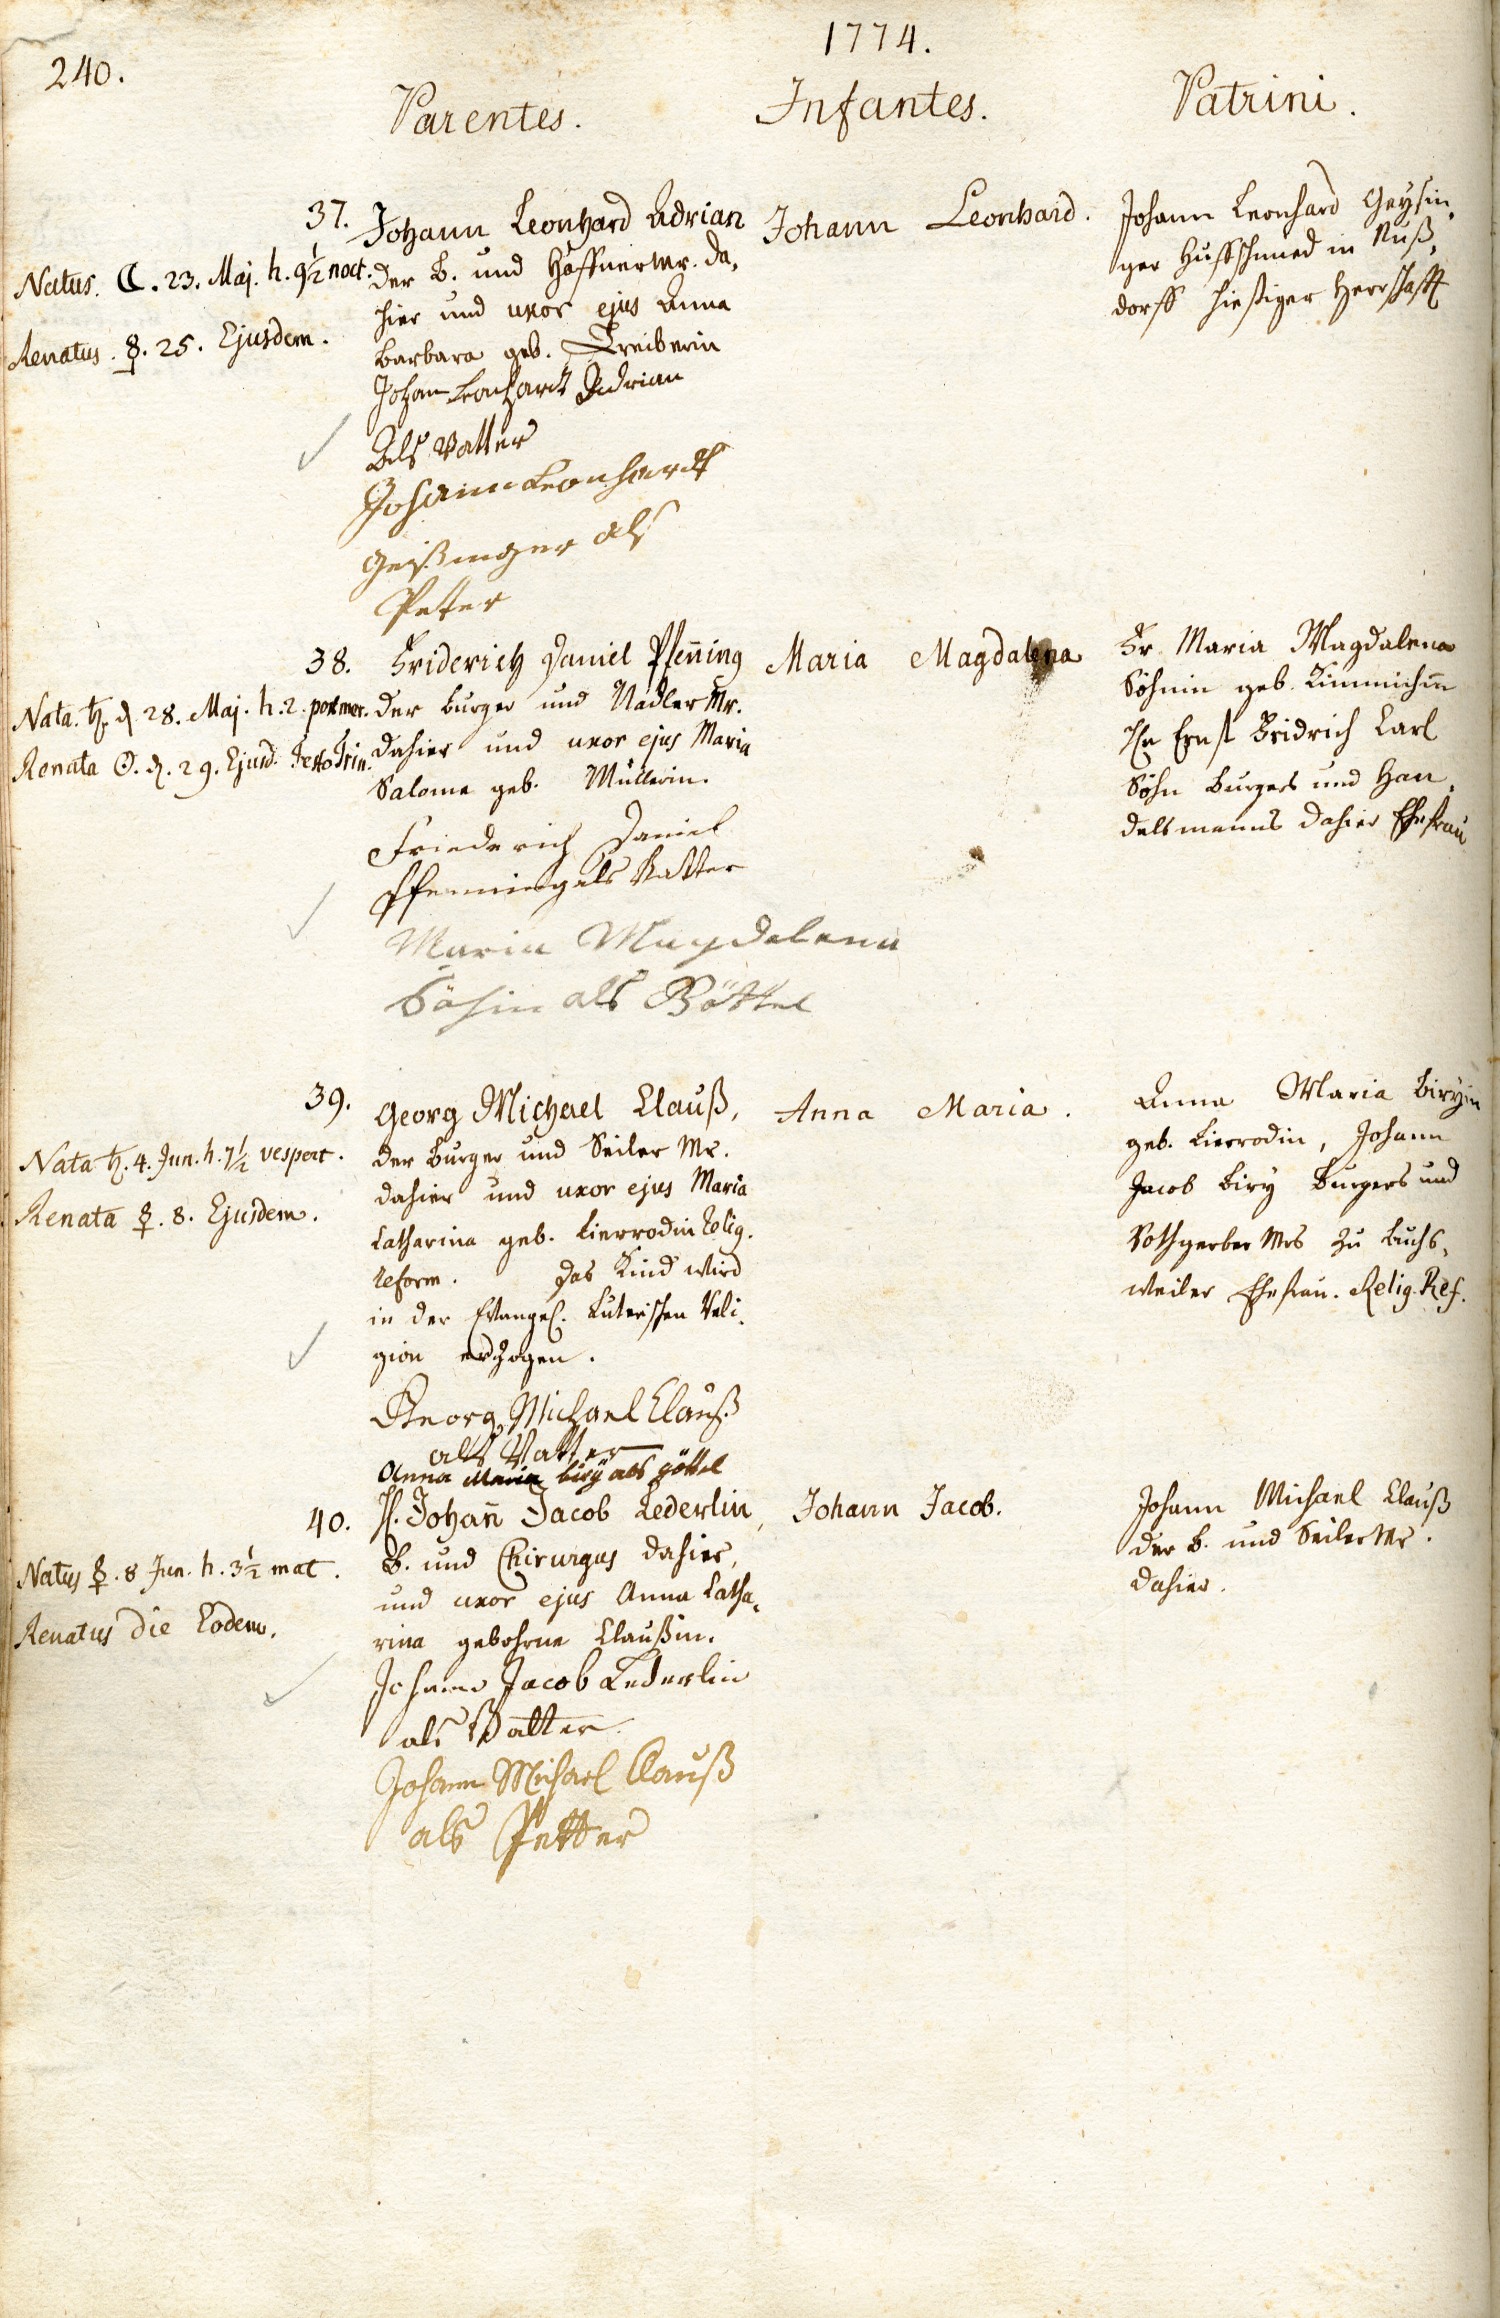 240.
1774.
Parentes.
Infantes.
Patrini.
37.
Natus. ☾. 23. Maj. h. 9½ noct.
Renatus. ☿. 25. Ejusdem.
Johann Leonhard Adrian
der B. und Haffner Mr. da,
hier und uxor ejus Anna
Barbara geb. Treiberin
Johan Leonhardt Adrian
Als Vatter
Johann Leonhardt
Geißinger als
Peter
Johann Leonhard.
Johann Leonhard Geysin,
ger Huffschmied in Nuß,
dorff hießiger Herrschafft
38.
Nata. ♄. d. 28. Maj. h. 2. pomer.
Renata ☉. d. 29. Ejusd. Festo Trin.
Friderich Daniel Pfen̄ing
der burger und Nadler Mr.
dahier und uxor ejus Maria
Salome geb. Müllerin.
Friederich Daniel
Pfenning als Vatter
Maria Magdalena
Söhnin als Göttel
Maria Magdalena
Fr. Maria Magdalena
Söhnin geb. Kimmichin
Hn Ernst Fridrich Carl
Söhn burgers und Han,
delsmanns dahier Ehefrau
39.
Nata ♄. 4. Jun. h. 7½ vespert.
Renata ☿. 8. Ejusdem.
Georg Michael Clauß,
der burger und Seiler Mr.
dahier und uxor ejus Maria
Catharina geb. Lierrodin Relig.
reform. Das Kind wird
in der Evangel. Luterischen Reli,
gion erzogen.
Georg Michael Clauß
als Vatter
Anna Maria biry als göttel
Anna Maria.
Anna Maria Biryin
geb. Lierrodin, Johann
Jacob Biry burgers und
Rothgerber Mrs zu Buchs,
weiler Ehefrau. Relig. Ref.
40.
Natus ☿. 8 Jun. h. 3½ mat.
Renatus die Eodem.
H. Johan̄ Jacob Lederlin,
B. und Chirurgus dahier,
und uxor ejus Anna Catha,
rina gebohrne Claußin.
Johann Jacob Lederlin
als Vatter.
Johann Michael Clauß
als Petter
Johann Jacob.
Johann Michael Clauß
der B. und Seiler Mr.
dahier.